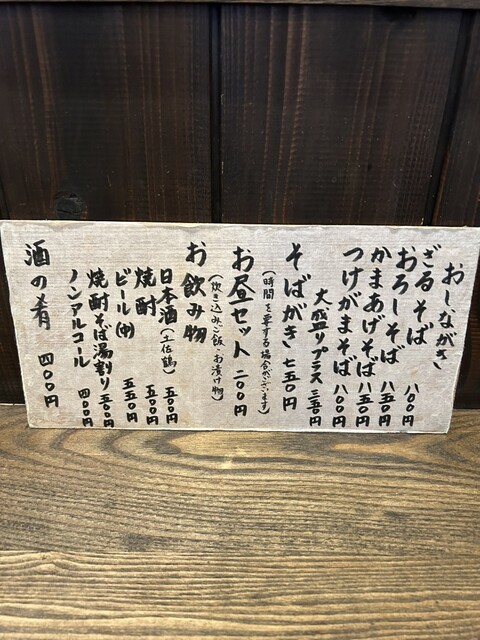 おしながき
ざるそば 八〇〇円
おろしそば 八五〇円
かまあげそば 八五〇円
つけがまそば 八〇〇円
大盛りプラス 三五〇円
そばがき 七五〇円
(時間を要する場合がございます)
お昼セット 二〇〇円
(炊き込みご飯・お漬け物)
お飲み物
日本酒(土佐鶴) 五〇〇円
焼酎 五〇〇円
ビール(中) 五五〇円
焼酎そば湯割り 五〇〇円
ノンアルコール 四〇〇円
酒の肴 四〇〇円